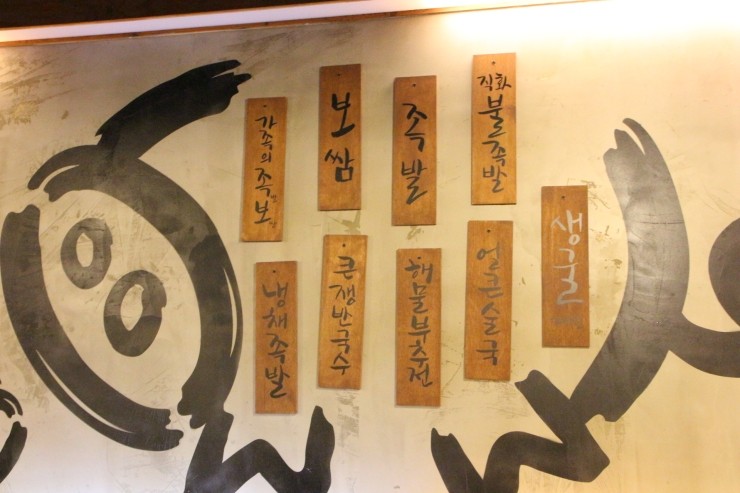 가족의 족발 보쌈
보쌈
족발
직화 불족발
생굴
냉채족발
큰쟁반국수
해물부추전
얼큰술국